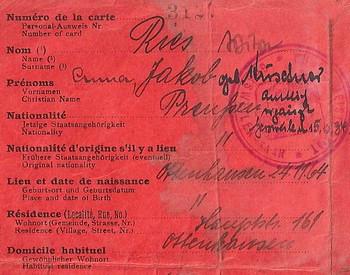 Numéro de la carte
Personal-Ausweis Nr.
Number of card
Ries
Nom (¹)
Name (¹)
Surname (¹)
Anna, Jakob geb. Kirschner
Prénoms
Vornamen
Christian Name
Preußen
Nationalité
Jetzige Staatsangehörigkeit
Nationality
"
Nationalité d'origine s'il y a lien
Frühere Staatsangehörigkeit (eventuell)
Original nationality
Ottenhausen 24.11.64
Lieu et date de naissance
Geburtsort und Geburtsdatum
Place and date of Birth
Hauptstr. 161
Résidence (Localité, Rue, No.)
Wohnort (Gemeinde, Strasse, Nr.)
Residence (Village, Street, No.)
Ottenhausen
Domicile habituel
Gewöhnlicher Wohnort
Habitual residence